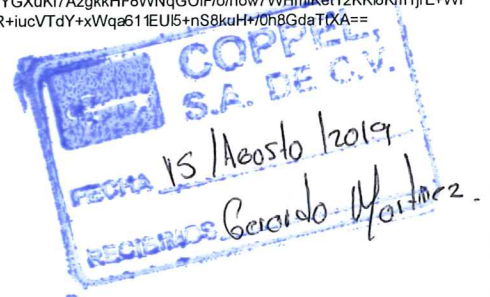 R+iucVTdY+xWqa611EUI5+nS8kuH+/0h8GdaTfXA==
COPPEL,
S.A. DE C.V.
FECHA 15/Agosto/2019
RECIBIMOS Gerardo Martinez.